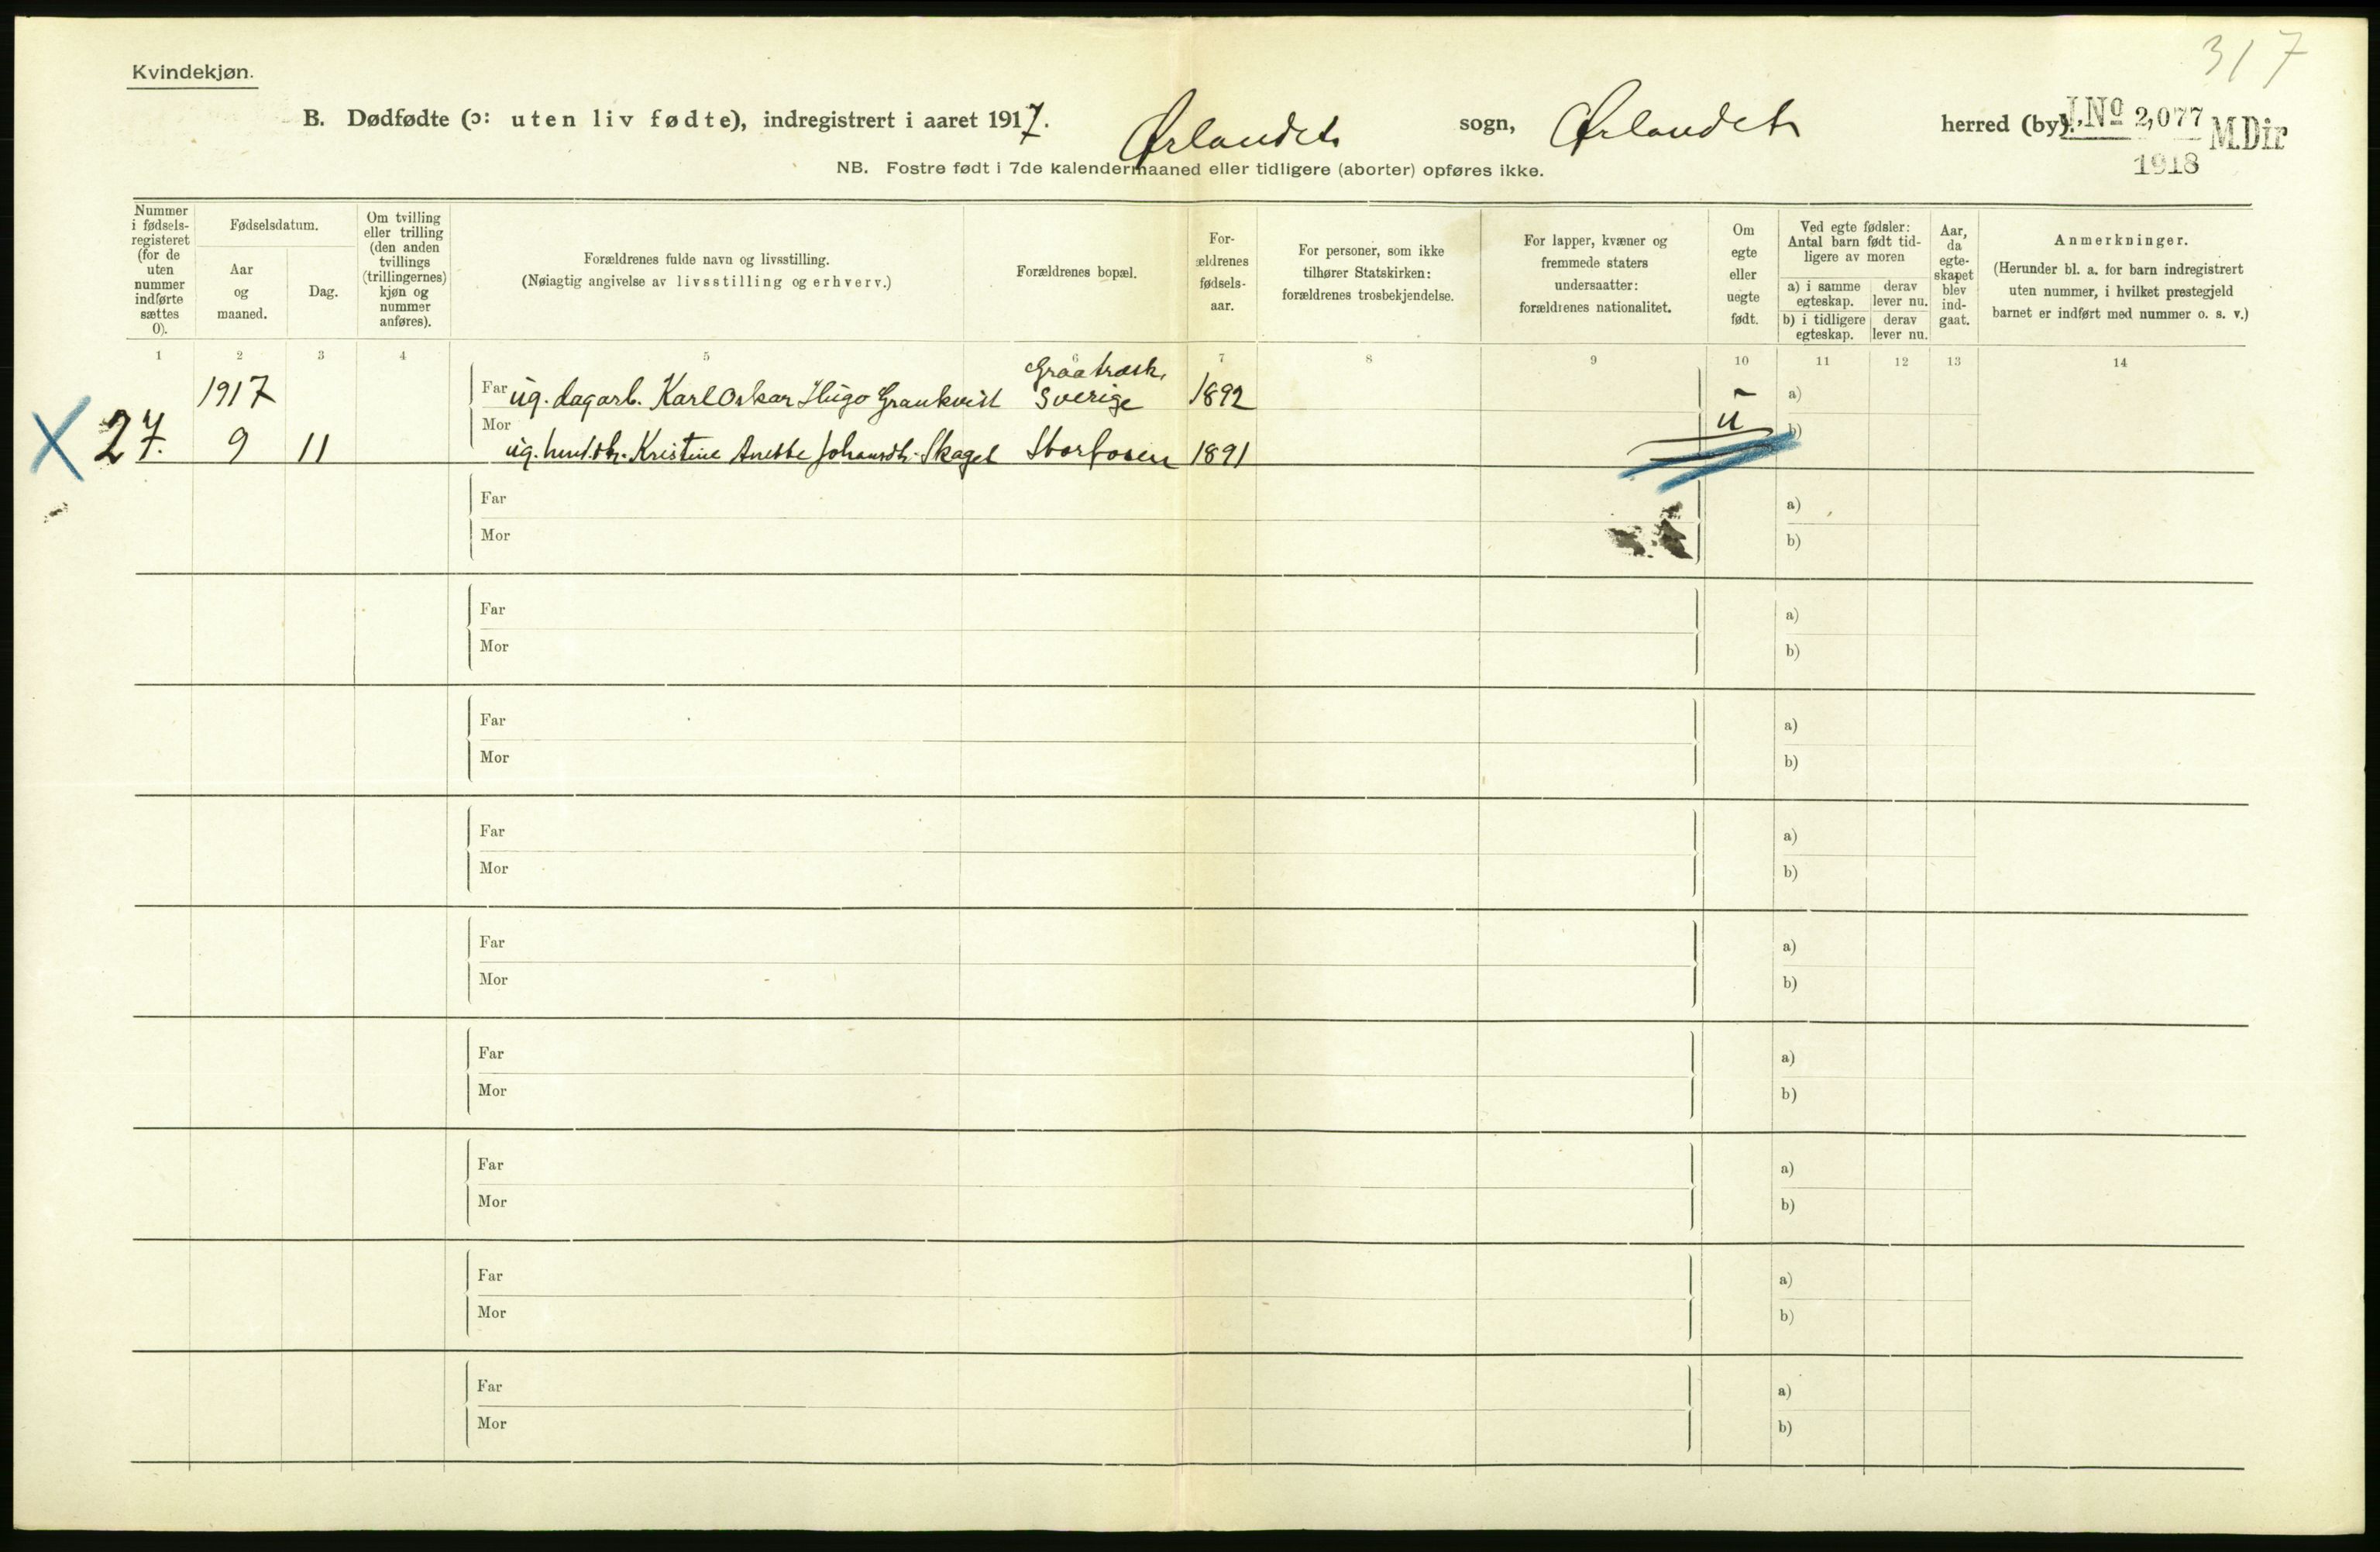 317
Kvindekjøn.
B. Dødfødte (ɔ: uten liv fødte), indregistrert i aaret 1917. Ørlandets sogn, Ørlandets herred (by).
J.No 2,077 M.Dir
1918
NB. Fostre født i 7de kalendermaaned eller tidligere (aborter) opføres ikke.
Nummer i fødsels-registeret (for de uten nummer indførte sættes 0).
Fødselsdatum.
Aar og maaned.
Dag.
Om tvilling eller trilling (den anden tvillings (trillingernes) kjøn og nummer anføres).
Forældrenes fulde navn og livsstilling.
(Nøiagtig angivelse av livsstilling og erhverv.)
Forældrenes bopæl.
For-ældrenes fødsels-aar.
For personer, som ikke tilhører Statskirken: forældrenes trosbekjendelse.
For lapper, kvæner og fremmede staters undersaatter: forældrenes nationalitet.
Om egte eller uegte født.
Ved egte fødsler: Antal barn født tid-ligere av moren
a) i samme egteskap.
derav lever nu.
b) i tidligere egteskap.
derav lever nu.
Aar, da egte-skapet blev ind-gaat.
Anmerkninger.
(Herunder bl. a. for barn indregistrert uten nummer, i hvilket prestegjeld barnet er indført med nummer o. s. v.)
1 2 3 4 5 6 7 8 9 10 11 12 13 14
Graatræsk,
1917 Far ug. dagarb. Karl Oskar Hugo Grankvist Sverige 1892 a)
X 27. 9 11 Mor ug. Kristine Anette Johansdtr. Skaget Storfosen 1891 u b)
Far a)
Mor b)
Far a)
Mor b)
Far a)
Mor b)
Far a)
Mor b)
Far a)
Mor b)
Far a)
Mor b)
Far a)
Mor b)
Far a)
Mor b)
Far a)
Mor b)